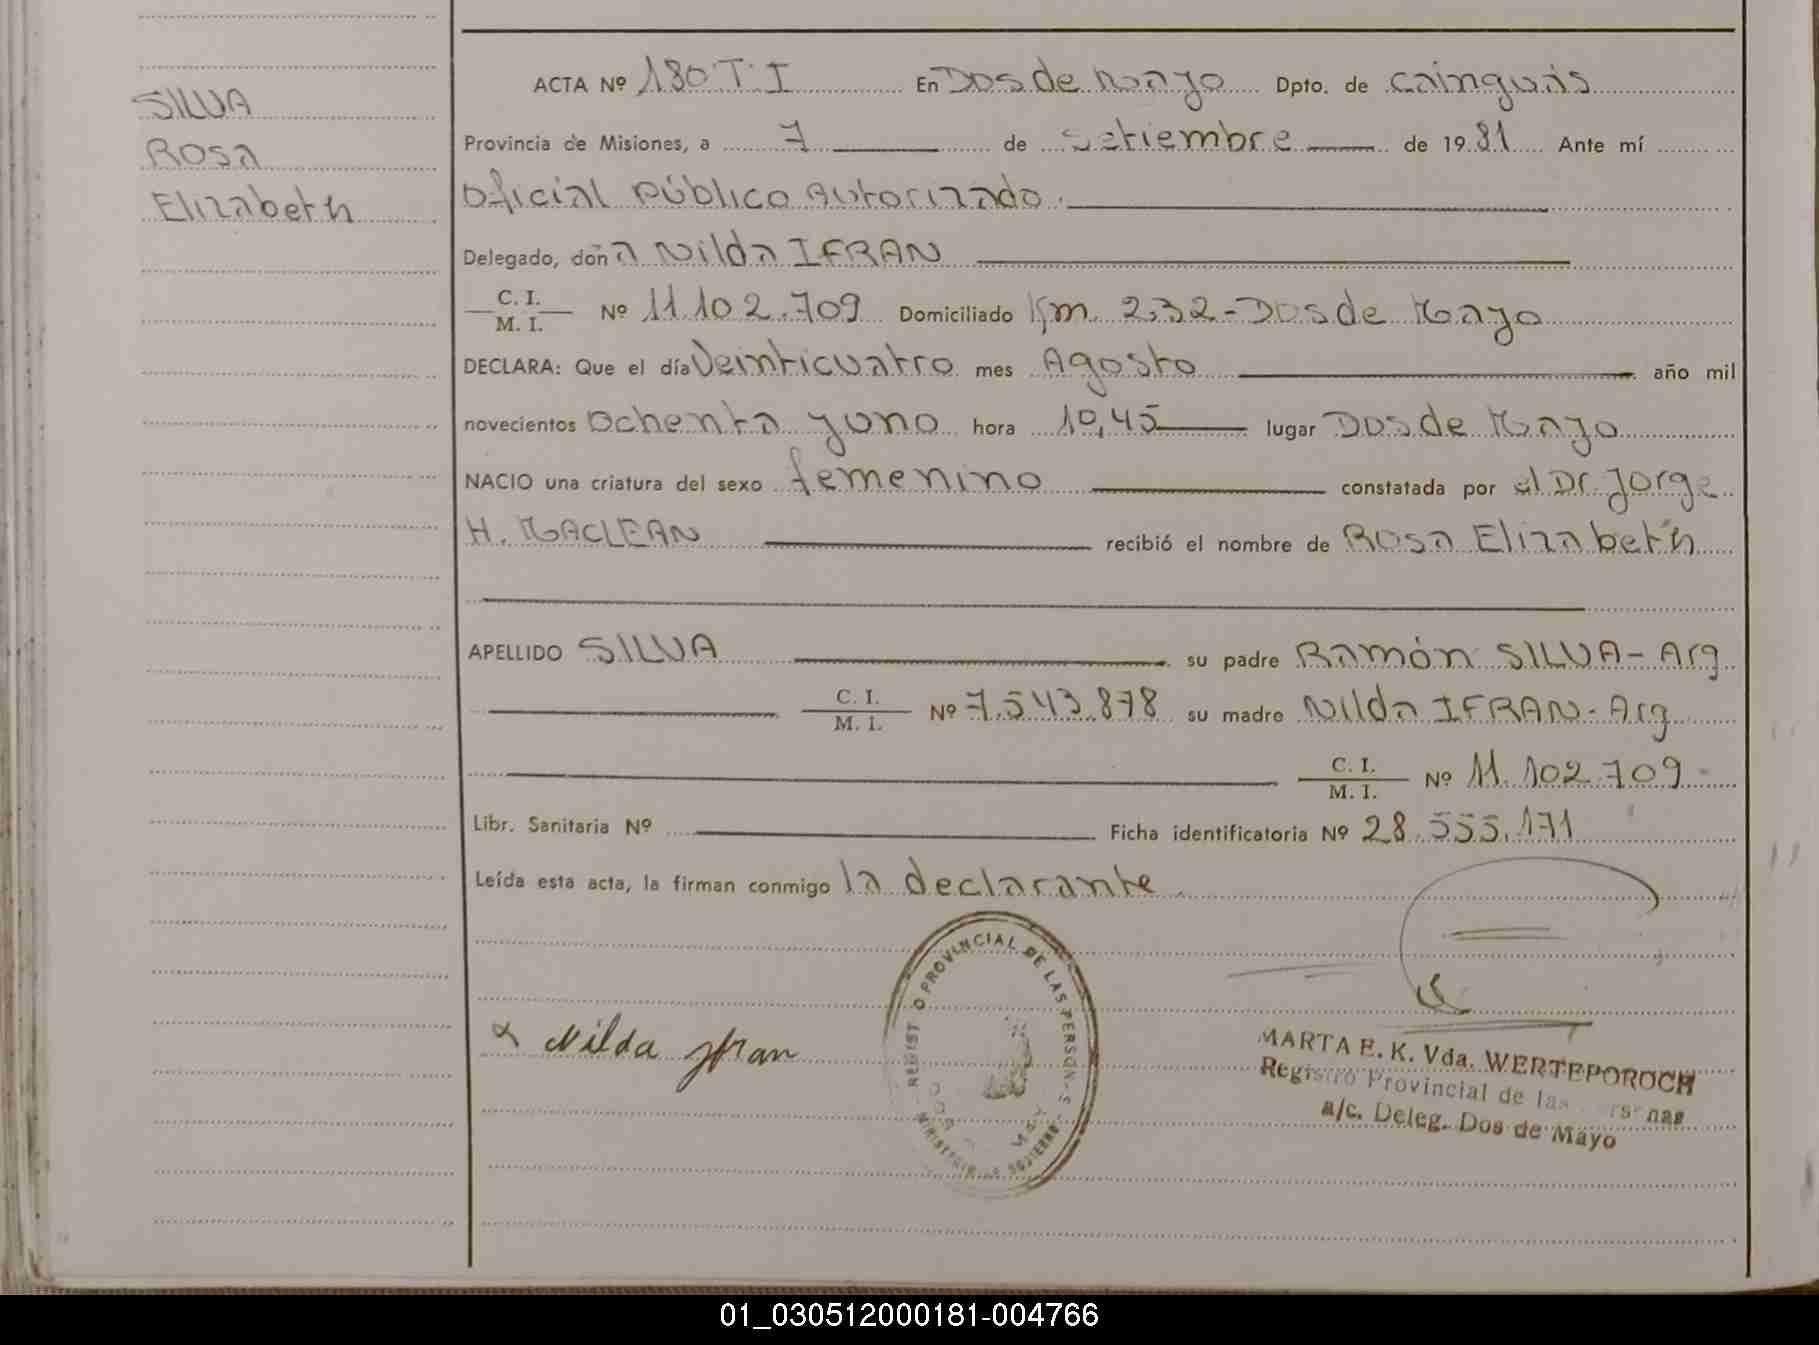 SILVA
Rosa
Elizabeth
ACTA Nº 180 T. I En Dos de Mayo Dpto. de Cainguás
Provincia de Misiones, a 7 de Setiembre de 1981 Ante mí
Oficial Público Autorizado.
Delegado, doña Nilda IFRAN
C. I.
M. I. Nº 11.102.709 Domiciliado Km. 232-Dos de Mayo
DECLARA: Que el día Veinticuatro mes Agosto año mil
novecientos Ochenta y uno hora 10,45 lugar Dos de Mayo
NACIO una criatura del sexo femenino constatada por el Dr. Jorge
H. MACLEAN recibió el nombre de Rosa Elizabeth
APELLIDO SILVA su padre Ramón SILVA-Arg
C. I.
M. I. Nº 7.543.878 su madre Nilda IFRAN-Arg
C. I.
M. I. Nº 11.102.709-
Libr. Sanitaria Nº Ficha identificatoria Nº 28.555.171
Leída esta acta, la firman conmigo la declarante.
REGISTRO PROVINCIAL DE LAS PERSONAS
Nilda Ifran
MARTA E. K. Vda. WERTEPOROCH
Registro Provincial de las Personas
a/c. Deleg. Dos de Mayo
01_030512000181-004766